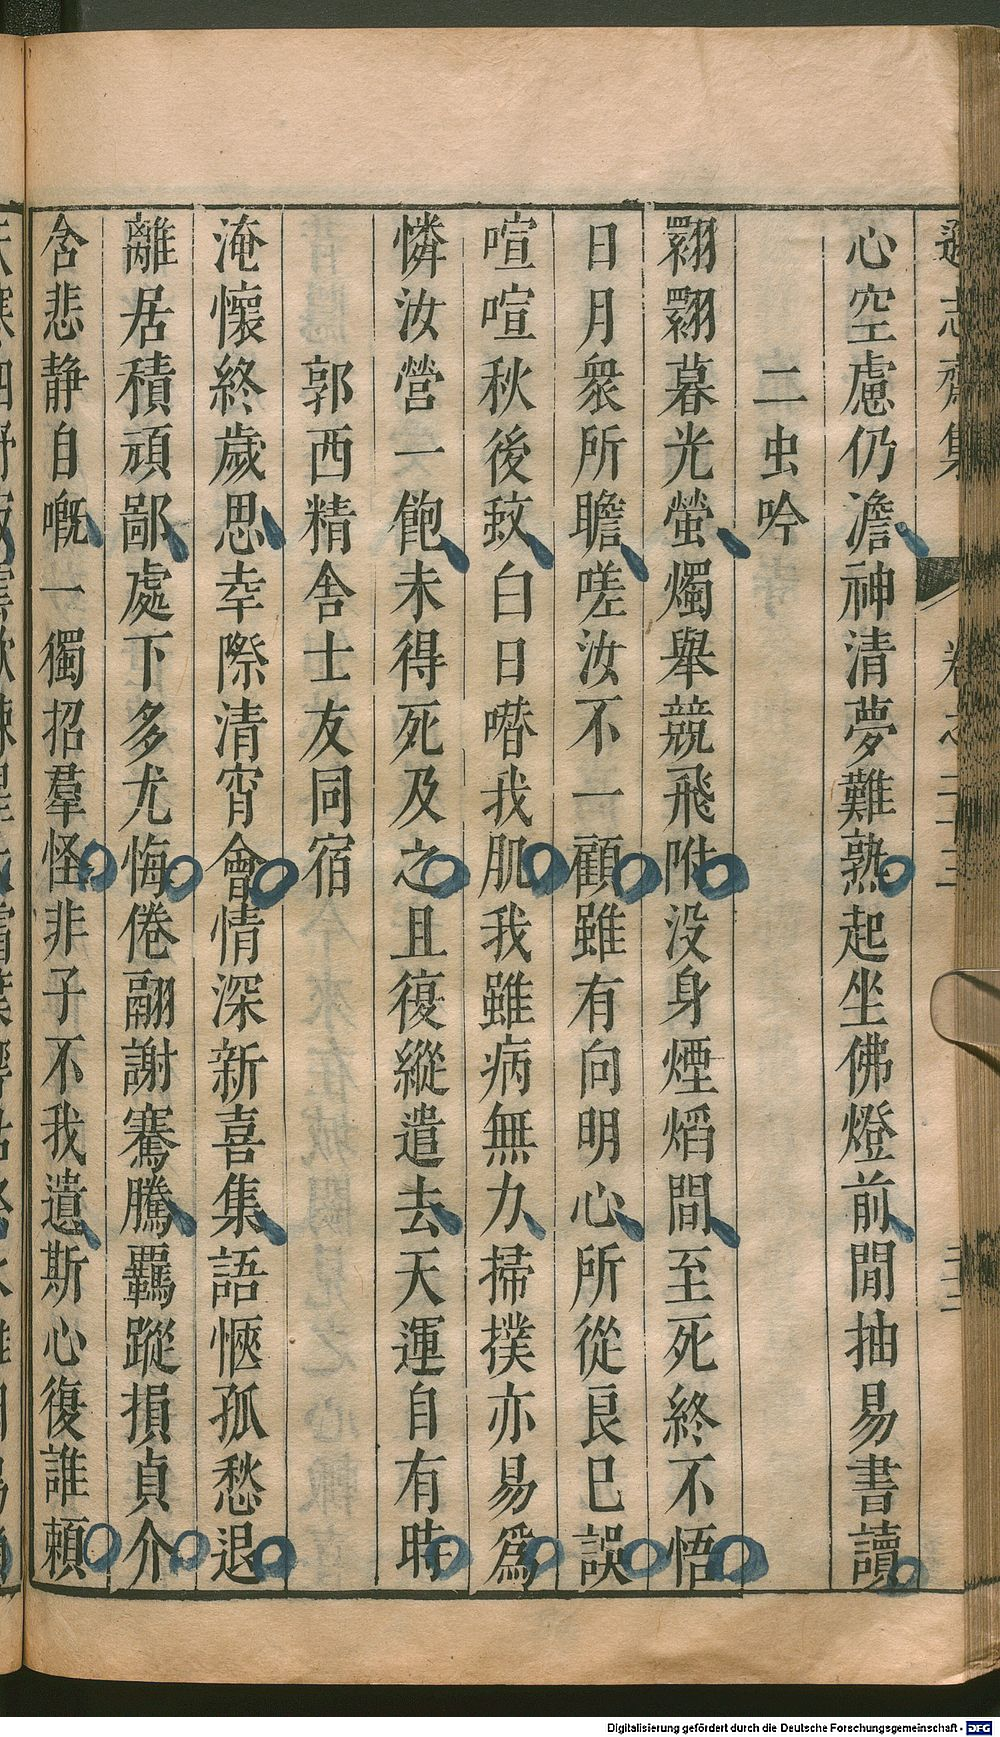 遜志齋集 卷之二十三
心空慮仍澹神清夢難熟起坐佛燈前閒抽易書讀
二虫吟
翾翾暮光螢燭舉競飛附没身煙熖間至死終不悟
日月衆所瞻嗟汝不一顧雖有向明心所從良巳誤
喧喧秋後蚊白日噆我肌我雖病無力掃撲亦易爲
憐汝營一飽未得死及之且復縱遣去天運自有時
郭西精舍士友同宿
淹懷終歲思幸際清宵會情深新喜集語愜孤愁退
離居積頑鄙處下多尤悔倦翮謝騫騰羈蹤損貞介
含悲静自嘅一獨招羣怪非子不我遺斯心復誰頼
Digitalisierung gefördert durch die Deutsche Forschungsgemeinschaft - DFG